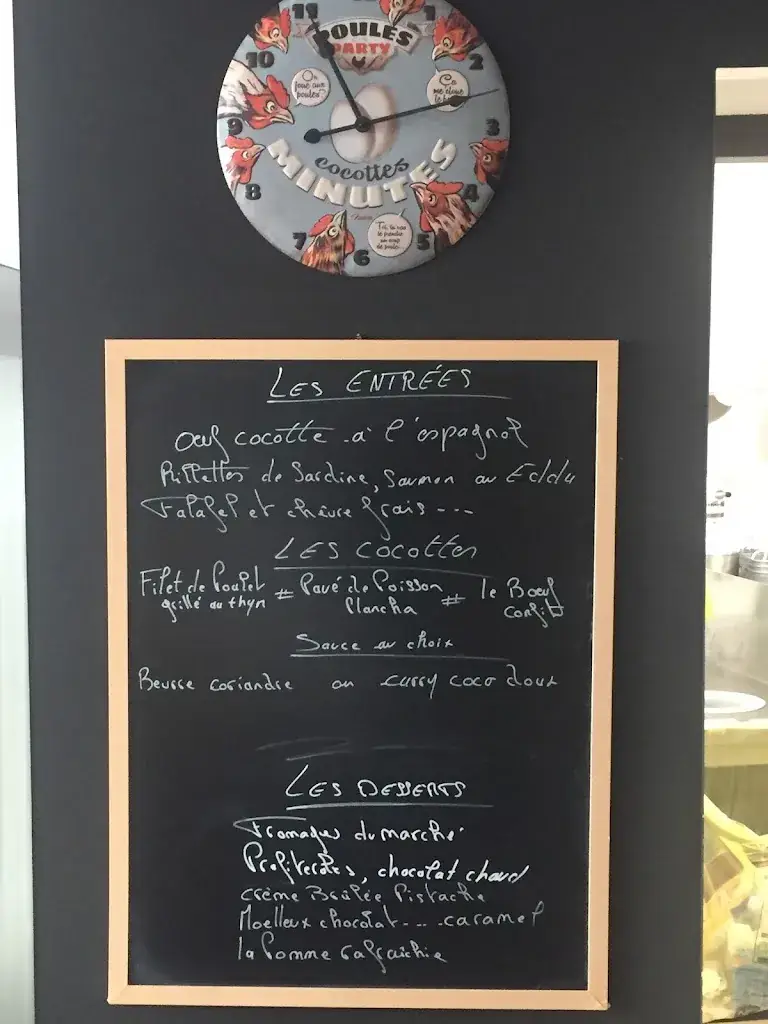 11 12 1
POULES
PARTY
10 2
On joue aux poules?
Ça me cloue le bec
9 3
cocottes
MINUTES
8 4
7 6 5
Toi, tu vas
te prendre
un coup
de poule...
LES ENTRÉES
Oeuf cocotte à l'espagnol
Rillettes de Sardine, Saumon au Eddu
Falafel et chèvre frais ---
LES COCOTTES
Filet de Poulet # Pavé de Poisson # le Boeuf
grillé au thyn Plancha confit
Sauce au choix
Beurre coriandre ou curry coco doux
LES DESSERTS
Fromages du marché
Profiteroles, chocolat chaud
crème Brûlée Pistache
Moelleux chocolat - .. - caramel
la Pomme rafraîchie